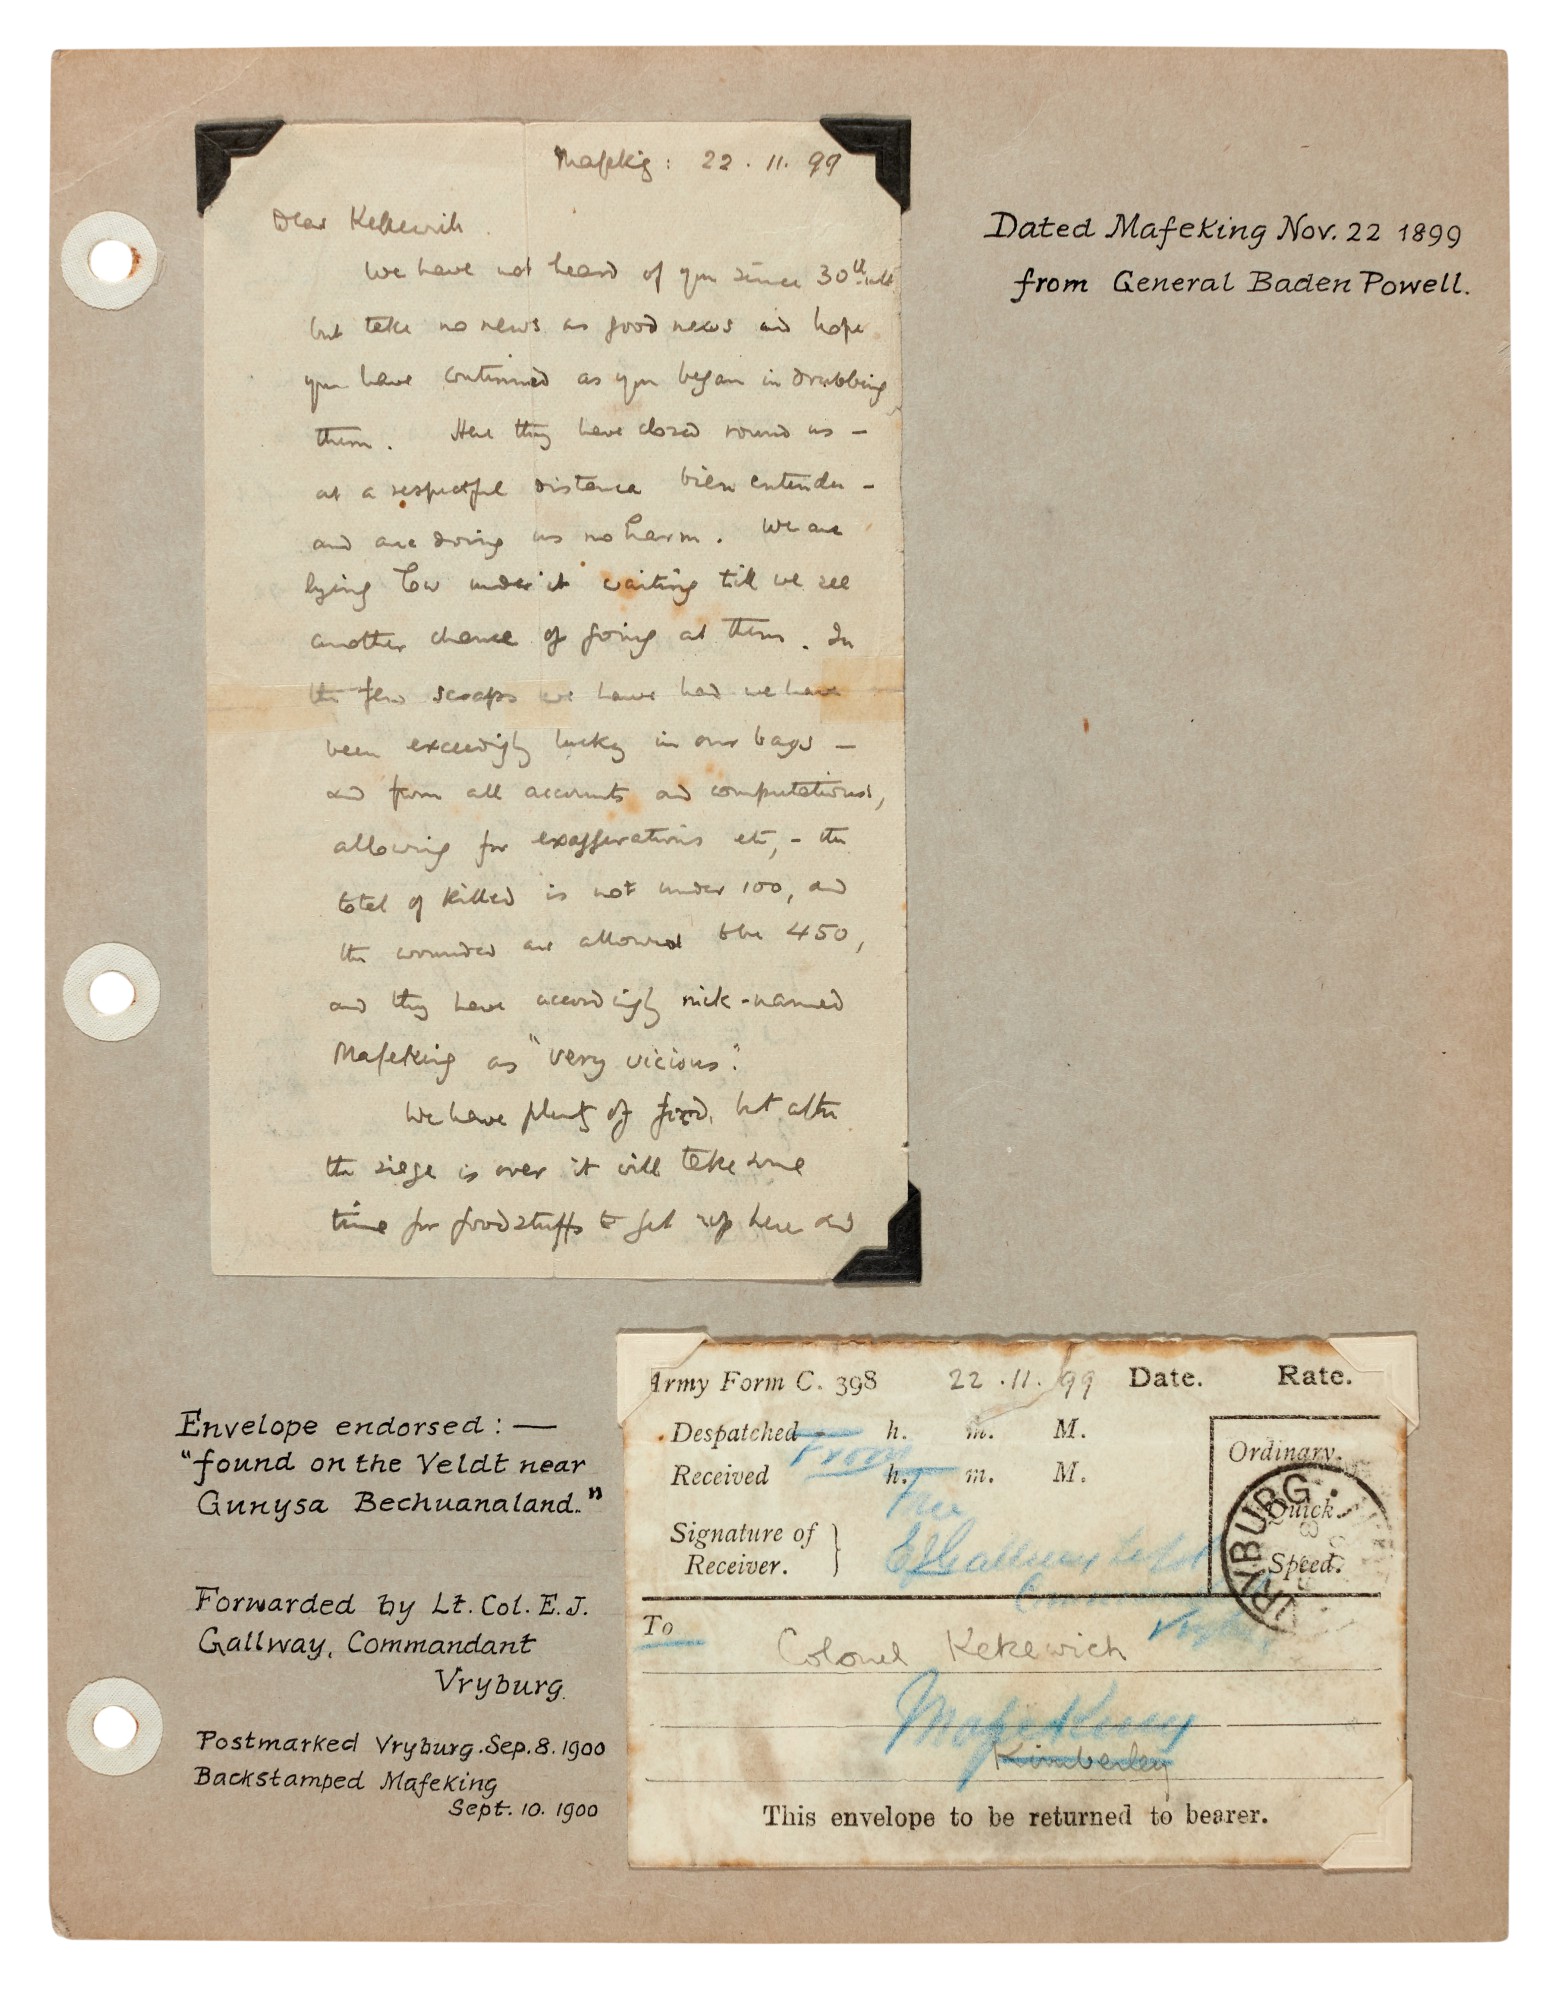 Mafekig : 22 . 11 . 99
Dear Kekewich.
We have not heard of you since 30th ult
but take no news as good news and hope
you have continued as you began in drubbing
them. Here they have closed round us –
at a respectful distance bien entendu –
and are doing us no harm. We are
lying low under it waiting till we see
another chance of going at them. In
the few scraps we have had we have
been exceedigly lucky in our bags –
and from all accounts and computations,
allowing for exaggerations etc, – the
total of killed is not under 100, and
the wounded are allowed to be 450,
and they have accordigly nick-named
Mafeking as "very vicious".
We have plenty of food, but after
the siege is over it will take some
time for foodstuffs to get up here and
Dated Mafeking Nov. 22 1899
from General Baden Powell.
Envelope endorsed : —
"found on the Veldt near
Gunysa Bechuanaland."
Forwarded by Lt. Col. E. J.
Gallway, Commandant
Vryburg.
Postmarked Vryburg. Sep. 8. 1900
Backstamped Mafeking
Sept. 10. 1900
Army Form C. 398 22 . 11 . 99 Date. Rate.
Despatched h. m. M.
From
Received h. m. M.
Ordinary.
Quick
Speed.
Signature of
Receiver.
EJGallwey Lt Col
VRYBURG
To
Colonel Kekewich
Mafeking
Kimberley
This envelope to be returned to bearer.